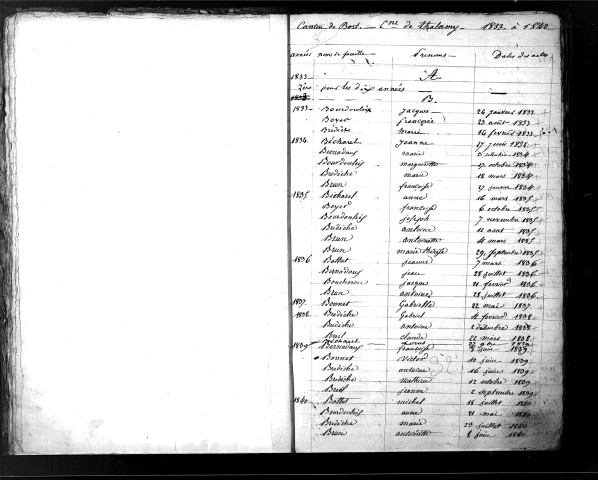 Canton de Bort. — Cne de Thalamy. — 1833 à 1842
années noms de famille Prénoms Dates des actes
1833 A
zéro pour les dix années —
B.
1833 Bourdoulix Jacques 24 janvier 1833
Boyer françoise 23 août 1833
Bredèche Marie 16 février 1833
1834 Bécharel Jeanne 17 juin 1834
Bernadoux marie 5 octobre 1834
Bourdoulix marguerite 17 octobre 1834
Bredèche marie 18 mars 1834
Brun françoise 17 janvier 1834
1835 Bécharel anne 16 mars 1835
Boyer françoise 6 octobre 1835
Bourdoulix joseph 7 novembre 1835
Bredèche antoine 11 aout 1835
Brun antoinette 4 mars 1835
Brun marie thérèse 29 septembre 1835
1836 Battut jeanne 7 mars 1836
Bernadoux jean 28 juillet 1836
Boucheron jacques 21 février 1836
Brun antoine 28 juillet 1836
1837 Bonnet Gabrielle 22 mai 1837
1838 Bredèche Gabriel 4 février 1838
Bredèche antoine 2 décembre 1838
Breil claude 22 mars 1838
Bécharel
1839 Bernadoux françoise 8 juin 1839
Bonnet Victor 10 juin 1839
Bredèche antoine 16 juin 1839
Bredèche mathieu 12 octobre 1839
Breil jeanne 2 septembre 1839
1840 Battut michel 18 juillet 1840
Bourdoulix anne 21 mai 1840
Bredèche marie 23 juillet 1840
Brun antoinette 8 juin 1840